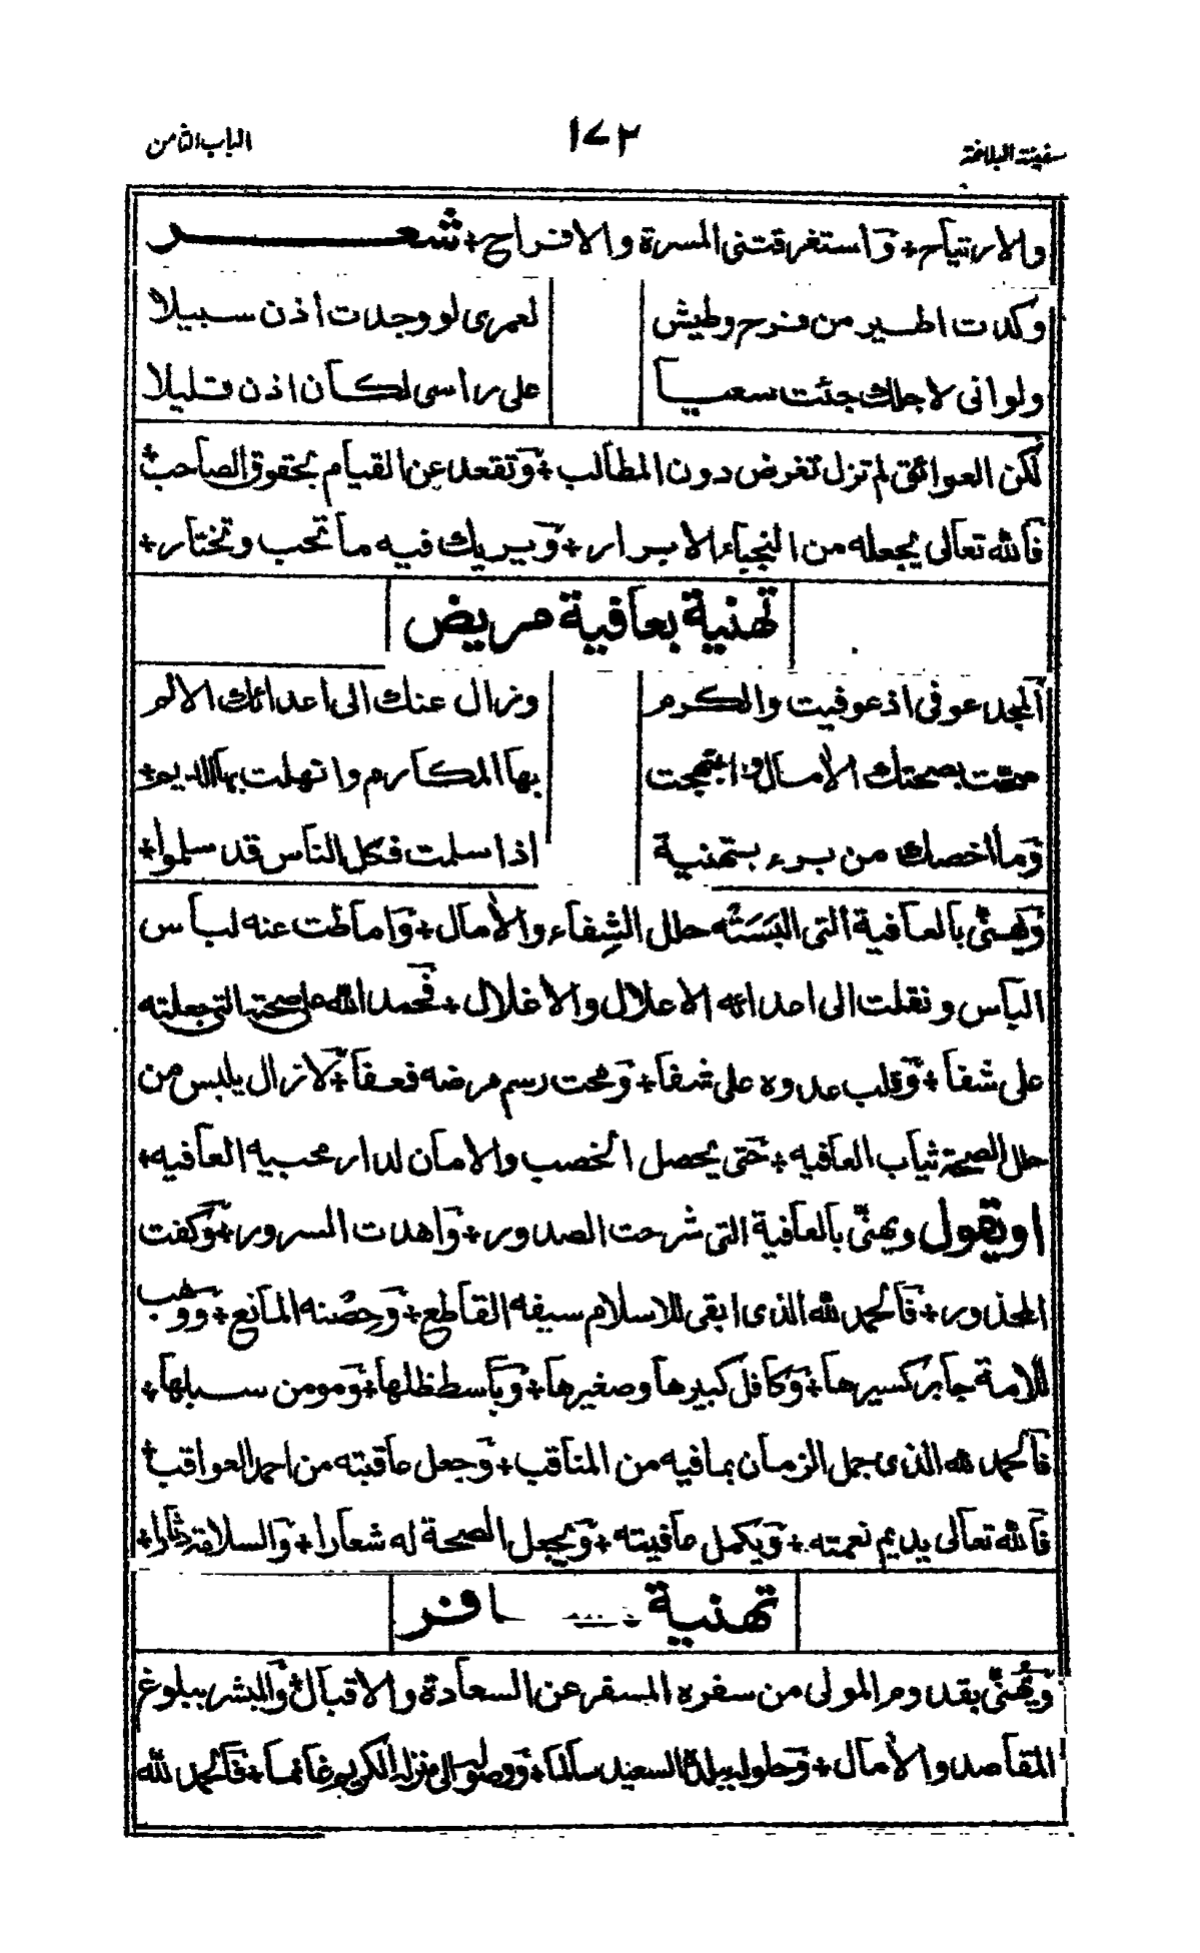 سفينة البلاغة ١٧٢ الباب الثامن
والارتياح + وَاستغرقتنى المسرة والافراح + شعر
وكدت اطير من فرح وطيش لعمرى لو وجدت أذن سبيلا
ولو انى لاجلك جئت سعيا على رأسى لكان اذن قليلا
لكن العوائق لم تزل تعرض دون المطالب + وَتقعد عن القيام بحقوق الصاحب +
فَالله تعالى يجعله من النجباء الابرار + وَيريك فيه ما تحب وتختار +
تهنية بعافية مريض
اَلمجد عوفى اذ عوفيت والكرم وزال عنك الى اعدائك الالم
صحّت بصحتك الأمال وابتهجت بها المكارم وانهلت بها الديم +
وَما اخصك من برء بتهنية اذا سلمت فكل الناس قد سلموا +
وَيهنّى بالعافية التى البَسَتْه حلل الشِفاء والأمال + وَاماطت عنه لباس
الباس ونقلت الى اعدائه الاعلال والاغلال + فَحمد الله على صحته التى جعلته
على شفا + وَقلب عدوه على شفا + وَمحت رسم مرضه فعفا + لَازال يلبس من
حلل الصحة ثياب العافيه + حَتى يحصل الخصب والامان لدار محبيه العافيه +
او يقول ويهنّى بالعافية التى شرحت الصدور + وَاهدت السرور + وَكفت
المحذور + فَالحمد لله الذى ابقى للاسلام سيفه القاطع + وَحِصْنه المانع + وَوهب
للامة جابر كسيرها + وَكافل كبيرها وصغيرها + وَباسط ظلها + وَمومن سبلها +
فَالحمد لله الذى جمل الزمان بمافيه من المناقب + وَجعل عاقبته من احمد العواقب +
فَالله تعالى يديم نعمته + وَيكمل عافيته + وَيجعل الصحة له شعارا + وَالسلامة دثارا +
تهنية افر
وَيُهَنّى بقدوم المولى من سفره المسفر عن السعادة والاقبال + وَالمبشر ببلوغ
المقاصد والأمال + وَحلوله ببلده السعيد سالما + وَوصوله الى منزله الكريم غانما + فَالحمد لله